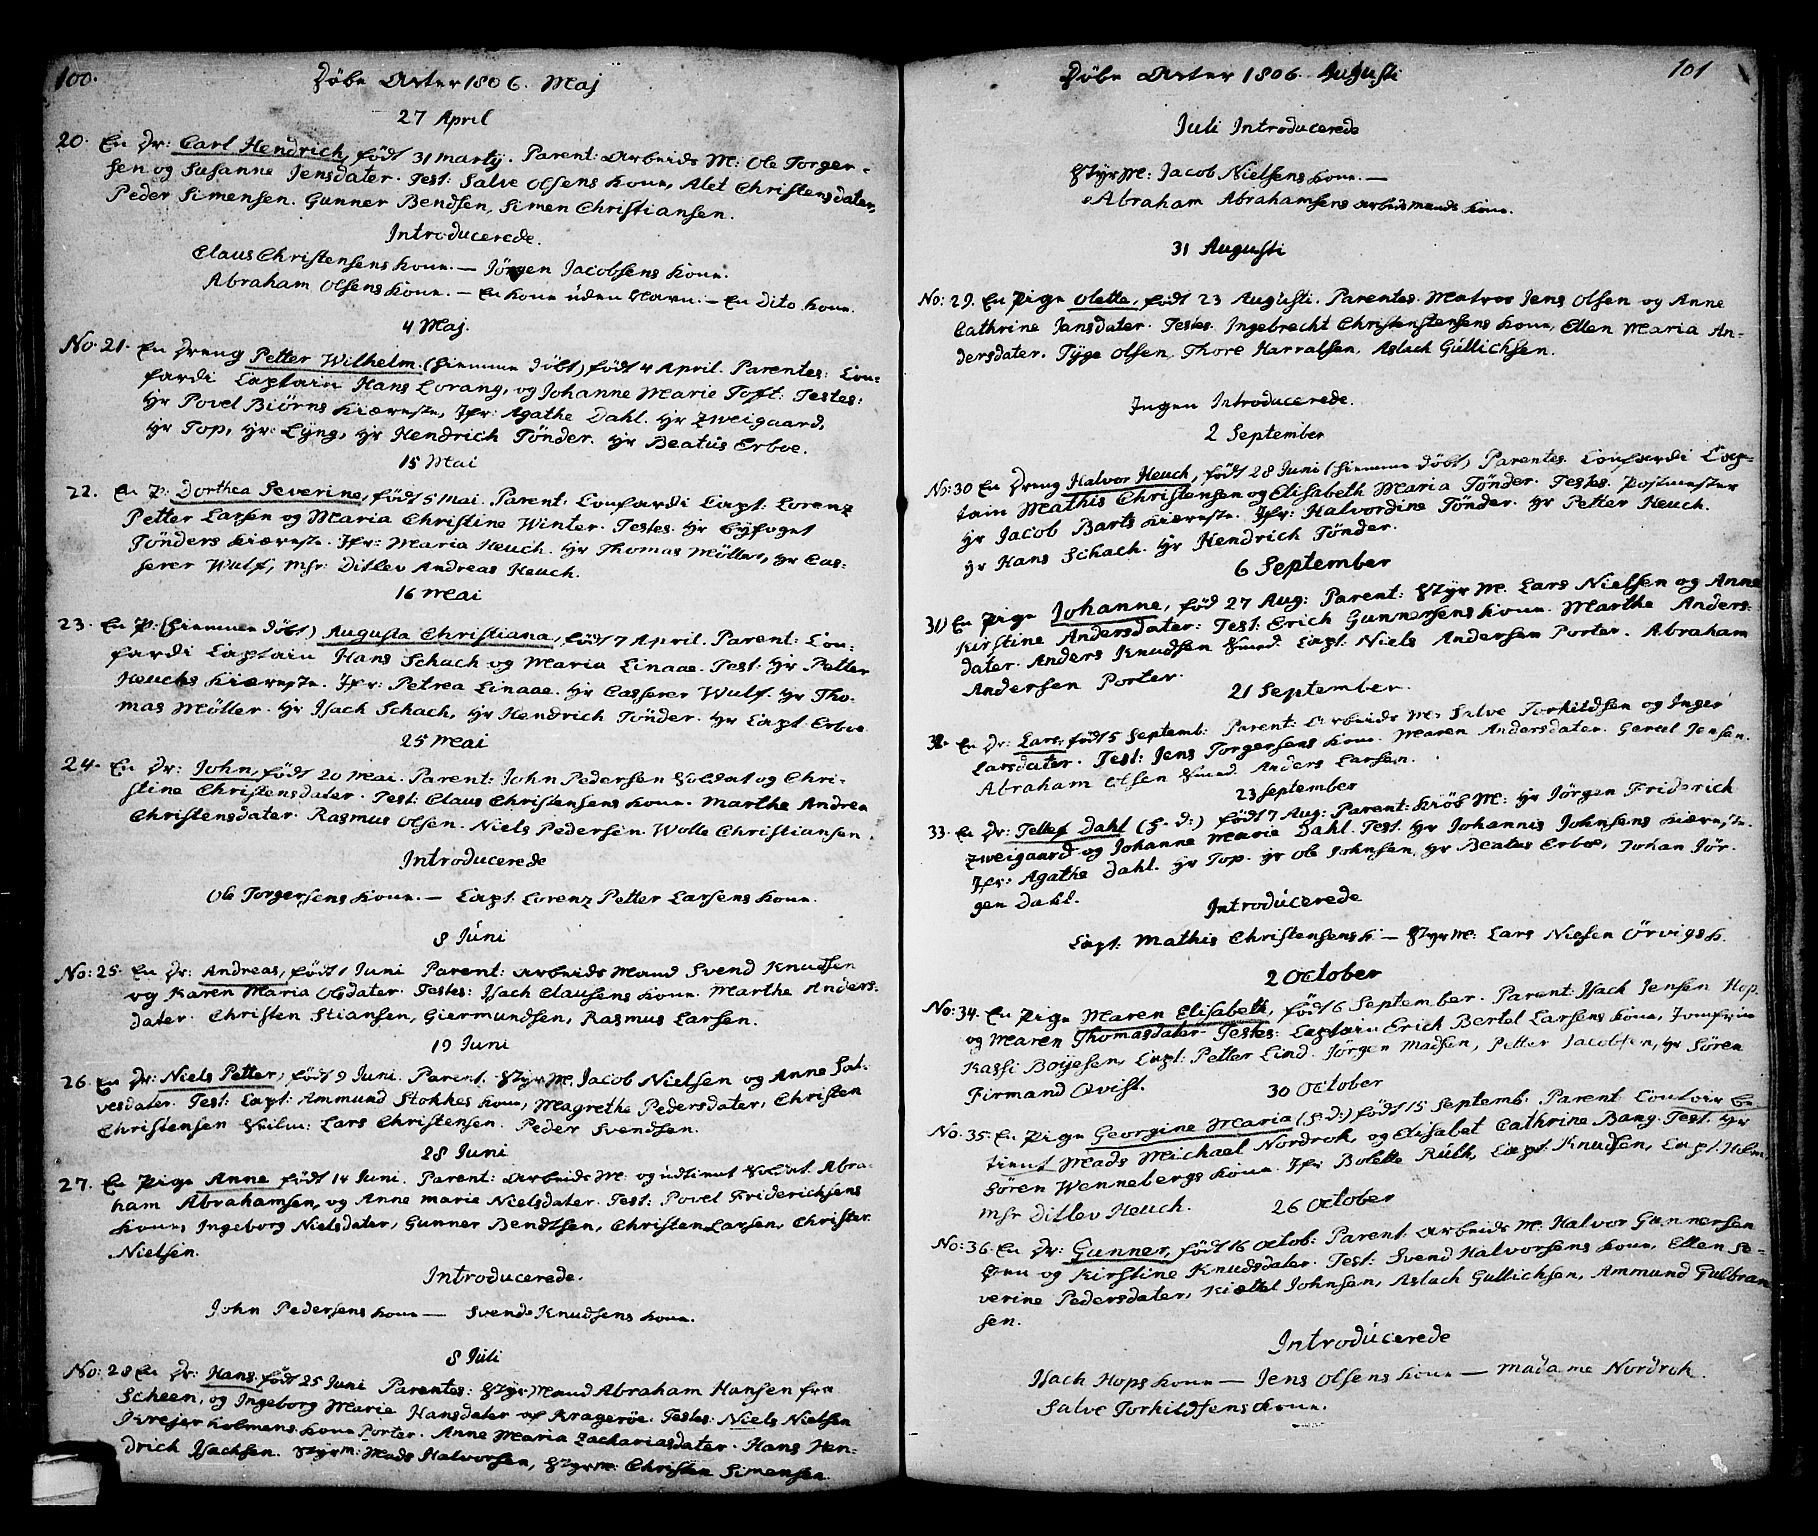 100.
Døbe Acter 1806. Maj
27 April
20. En Dr: Carl Hendrich, født 31 Martij. Parent: Arbeids M: Ole Torger-
sen og Susanne Jensdater. Test: Salve Olsens Kone, Alet Christensdater,
Peder Simensen. Gunner Bendsen, Simen Christiansen.
Introducerede.
Claus Christensens Kone. — Jörgen Jacobsens Kone.
Abraham Olsens Kone. — En Kone uden Navn. — En dito Kone.
4 Maj.
No. 21. En Dreng Petter Wilhelm. (hiemme døbt) født 4 April. Parentes: Cou-
fardi Captain Hans Lorang, og Johanne Marie Toft: Testes:
Hr Povel Biörns Kiæreste, Jfr: Agathe Dahl. Hr Zweigaard,
Hr Top, Hr: Lÿng, Hr Hendrich Tönder. Hr Beatus Erboe.
15 Mai
22. En P: Dorthea Severine, født 5 Mai. Parent: Coufardi Capt: Lorenz
Petter Larsen og Maria Christine Winter. Testes: Hr Byfoget
Tönders Kiæreste. Jfr: Maria Heuch. Hr Thomas Möller, Hr Cas-
serer Wulf, Msr: Ditlev Andreas Heuch.
16 Mai
23. En P: (hiemme døbt) Augusta Christiana, født 7 April. Parent: Cou-
fardi Captain Hans Schach og Maria Linaae. Test: Hr Petter
Heuchs Kiæreste. Jfr: Petrea Linaae. Hr Casserer Wulf. Hr Tho-
mas Möller. Hr Isach Schach, Hr Hendrich Tönder. Hr Capt Erboe
25 Mai
24. En Dr: John, født 20 Mai. Parent: John Pedersen Soldat og Chri-
stine Christensdater. Test: Claus Christensens Kone. Marthe Andrea
Christensdater. Rasmus Olsen. Niels Pedersen. Wolle Christiansen.
Introducerede
Ole Torgersens Kone. — Capt. Lorenz Petter Larsens Kone.
8 Júni
No: 25. En Dr: Andreas, født 1 Juni Parent: Arbeids Mand Svend Knudsen
og Karen Maria Olsdater. Testes: Isach Clausens Kone. Marthe Anders-
dater. Christen Stiansen, Giermundsen, Rasmus Larsen.
19 Juni
26. En Dr: Niels Petter, født 9 Juni. Parent. StyrM. Jacob Nielsen og Anne Sal-
vesdater. Test: Capt: Ammund Stokkes Kone, Magrethe Pedersdater, Christen
Christensen Lars Christensen. Peder Svendsen.
28 Juni
27. En Pige Anne, født 14 Juni. Parent: Arbeids M: og udtient Soldat. Abra-
ham Abrahamsen, og Anne Marie Nielsdater. Test: Povel Friderichsens
Kone, Ingeborg Nielsdater, Gunner Bendtsen, Christen Larsen, Christen
Nielsen.
Introducerede.
John Pedersens Kone — Svend Knudsens Kone.
8 Juli
No: 28 En Dr: Hans, født 25 Juni Parentes: StyrMand Abraham Hansen fra
Scheen, og Ingeborg Marie Hansdater af Kragerøe. Testes: Niels Nielsen
Krejerholmens Kone Porter. Anne Maria Zachariasdater. Hans Hen-
drich Isachsen. Styrm: Mads Halvorsen, Styrm: Christen Simensen
101
Døbe Acter 1806. Augusti
Juli Introducerede
StyrM: Jacob Nielsens Kone. —
Abraham Abrahamsens Arbeidsmands Kone.
31 Augusti
No: 29. En Pige Olette, født 23 Augusti. Parentes. Matros Jens Olsen og Anne
Cathrine Jansdater. Testes. Ingebrecht Christenstensens Kone, Ellen Maria An-
dersdater. Tÿge Olsen, Thore Harralsen, Aslach Gullichsen.
Ingen Introducerede.
2 September
No: 30 En Dreng Halvor Heuch, født 28 Juni (hiemme døbt) Parentes. Coufardi Cap-
tain Mathis Christensen og Elisabeth Maria Tönder. Testes. Postmester
Hr Jacob Barts Kiæreste. Jfr: Halvordine Tönder. Hr Petter Heuch.
Hr Hans Schach. Hr Hendrich Tönder.
6 September
31) En Pige Johanne, fød 27 Aug: Parent: StyrM. Lars Nielsen og Anne
Kirstine Andersdater: Test: Erich Gunnersens Kone. Marthe Anders-
dater. Anders Knudsen Smed. Capt. Niels Andersen Porter. Abraham
Andersen Porter.
21 September.
32. En Dr: Lars, født 5 Septemb: Parent: Arbeids M: Salve Torkildsen og Inger
Larsdater. Test: Jens Torgersens Kone. Maren Andersdater. Gereel Jensen.
Abraham Olsen Smed. Anders Larsen.
23 September
33. En Dr: Tellef Dahl (h. d:) født 7 Aug: Parent: Kiöb M: Hr Jörgen Friderich
Zweigaard og Johanne Marie Dahl. Test. Hr Johannis Johnsens Kiæreste.
Jfr: Agathe Dahl. Hr Top. Hr Ole Johnsen, Hr Beatus Erboe, Johan Jör-
gen Dahl.
Introdúcerede
Capt: Mathis Christensens K. — StyrM: Lars Nielsen Örvigs K.
2 October
No: 34. En Pige Maren Elisabeth, født 6 September. Parent: Isach Jensen Hop.
og Maren Thomasdater. Testes: Captain Erich Bertel Larsens Kone, Jomfrue
Kassi Boÿesen, Capt: Petter Lind. Jörgen Madsen, Petter Jacobsen, Hr Sören
Firmand Qvist.
30 October
No. 35. En Pige Georgine Maria (h. d:) født 15 Septemb. Parent: Contoir Be-
tient Mads Michael Nordrok, og Elisabet Cathrine Bang. Test: Hr
Sören Wennebergs Kone. Jfr Bolette Rúth, Capt: Knudsen, Capt Holm,
Msr Ditlev Heuch.
26 October
No: 36. En Dr: Gunner, født 16 Octob: Parent. Arbeids M. Halvor Gunnersen
og Kirstine Knudsdater. Test: Svend Halvorsens Kone, Ellen Se-
verine Pedersdater, Kiettel Johnsen, Aslach Gullichsen, Ammund Gulbran-
sen.
Introdúcerede
Isach Hops Kone — Jens Olsens Kone — Madame Nordrok.
Salve Torkildsens Kone.